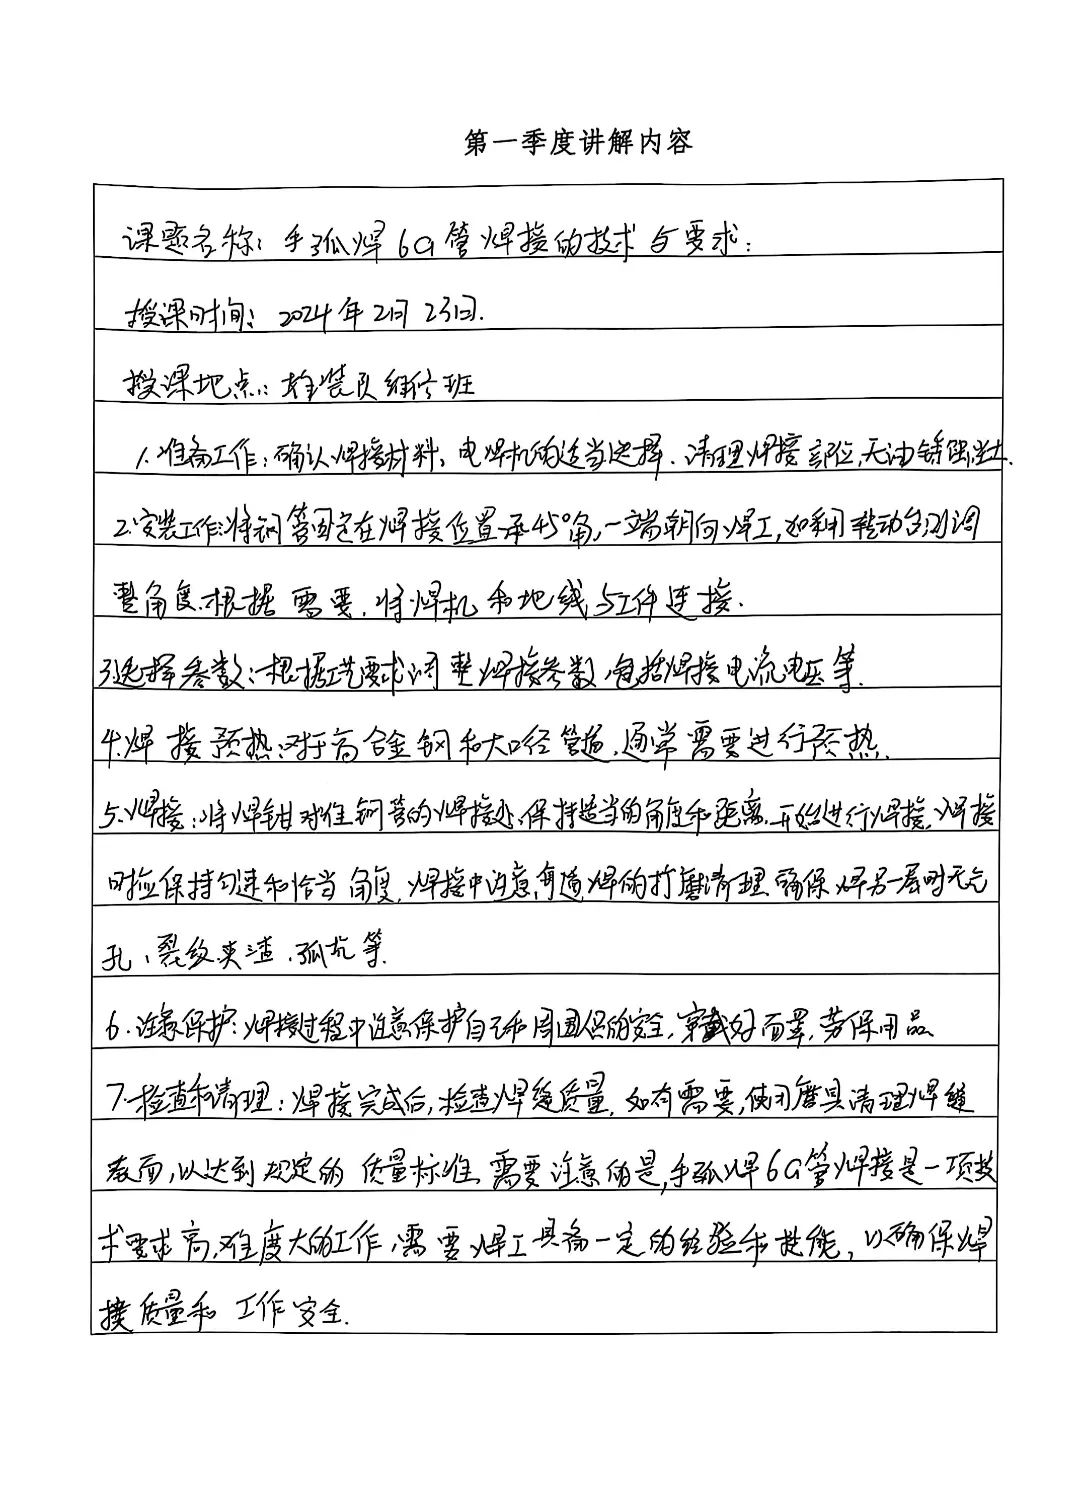 第一季度讲解内容
课题名称：手弧焊6G管焊接的技术与要求：
授课时间：2024年2月23日.
授课地点：维修班
1.准备工作：确认焊接材料，电焊机的适当选择.清理焊接部位,无油锈
2.安装工作：将钢管固定在焊接位置呈45°角,一端朝向焊工,如利用转动台测调
整角度.根据需要，将焊机和地线与工件连接.
3.选择参数：根据工艺要求调整焊接参数，包括焊接电流电压等.
4.焊接预热：对于高合金钢和大口径管道，通常需要进行预热.
5.焊接：将焊钳对准钢管的焊接处,保持适当的角度和距离.开始进行焊接.焊接
时应保持匀速和恰当角度.焊接中注意每道焊的打磨清理.确保焊另一层时无气
孔、裂纹夹渣、弧坑等.
6.注意保护：焊接过程中注意保护自己和周围人的安全，穿戴好面罩，劳保用品
7.检查和清理：焊接完成后,检查焊缝质量，如有需要,使用磨具清理焊缝
表面，以达到规定的质量标准.需要注意的是,手弧焊6G管焊接是一项技
术要求高,难度大的工作，需要焊工具备一定的经验和技能，以确保焊
接质量和工作安全.